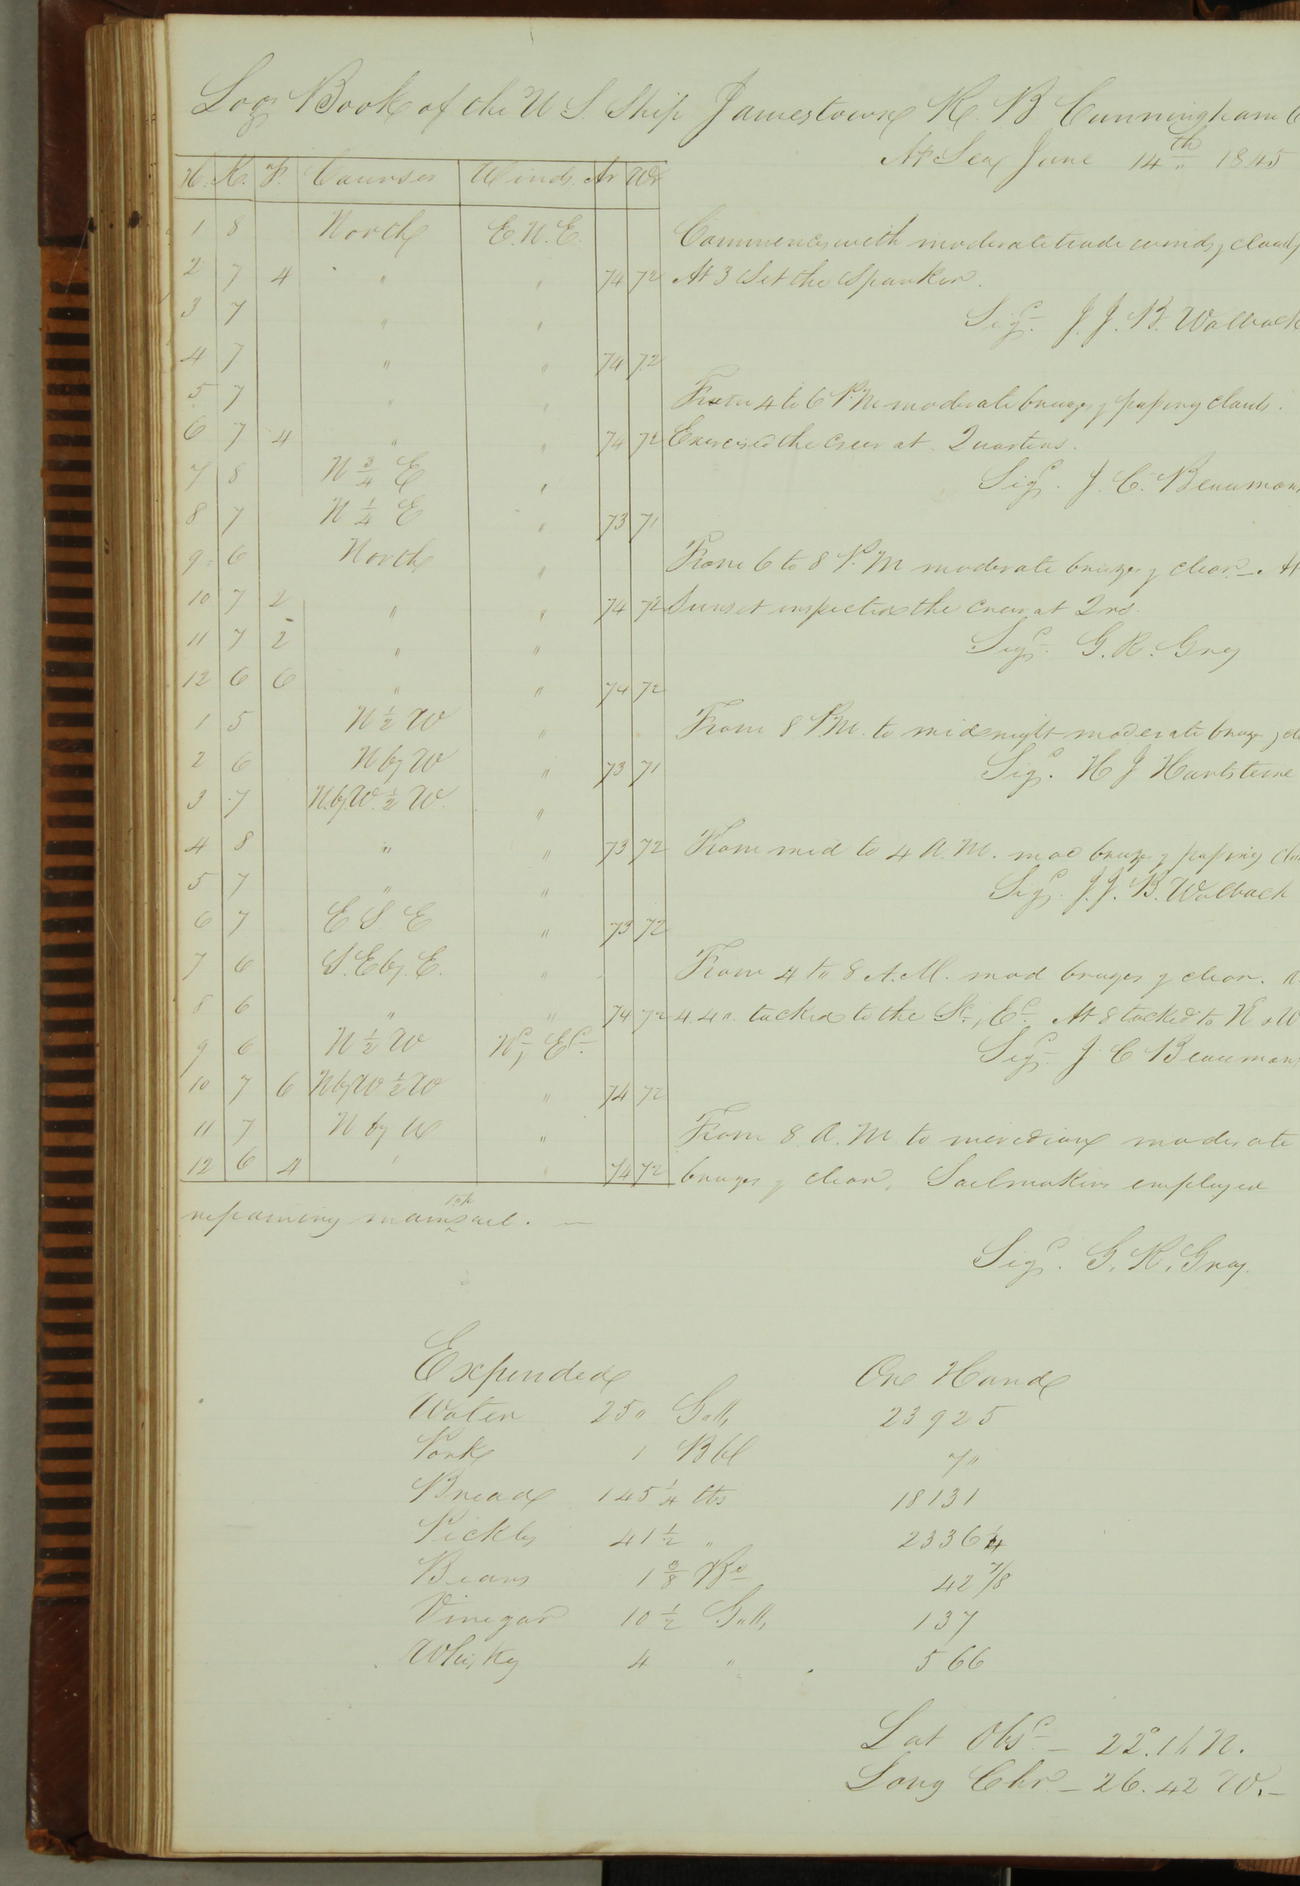 Log Book of the U S. Ship Jamestown R. B Cunningham
At Sea June 14th 1845
H. K. F. Courses Winds Ar Wr
1 8 North E.N.E.
2 7 4 " " 74 72
3 7 " "
4 7 " " 74 72
5 7 " "
6 7 4 " " 74 72
7 8 N 3/4 E "
8 7 N 1/4 E " 73 71
9 6 North "
10 7 2 " " 74 72
11 7 2 " "
12 6 6 " " 74 72
1 5 N 1/2 W "
2 6 N by W " 73 71
3 7 N.by W. 1/2 W. "
4 8 " " 73 72
5 7 " "
6 7 E S E " 73 72
7 6 S.E by. E. "
8 6 " " 74 72
9 6 N 1/2 W Nd, Ed
10 7 6 N by W 1/2 W " 74 72
11 7 N by W "
12 6 4 " " 74 72
Commences with moderate trade winds, cloudy
At 3 Set the Spanker.
Sigd. J. J. B. Walback
From 4 to 6 P.M. moderate breezes & passing clouds.
Exercised the crew at Quarters.
Sigd. J. C. Beaumon
From 6 to 8 P. M moderate breezes & clear. At
Sunset inspected the crew at Qrs.
Sigd. G. R. Gray
From 8 P.M. to midnight moderate breeze &
Sigd. H J Hartstene
From mid to 4 A. M. mod breeze & passing
Sigd. J. J. B. Walbach
From 4 to 8 A.M. mod breezes & clear.
4.40. tacked to the Sd, Ed. At 8 tacked to N & W
Sigd. J C Beaumon
From 8 A. M to meridian moderate
breezes & clear, Sailmakers employed
repairing maintopsail.
Sigd. G. R. Gray.
Expended On Hand
Water 250 Galls 23925
Pork 1 Bbl 70
Bread 145 1/4 lbs 18131
Pickles 41 1/2 " 2336 1/4
Beans 1 3/8 Bs 42 7/8
Vinegar 10 1/2 Galls 137
Whisky 4 " 566
Lat Obsd - 22°.16 N.
Long Chr - 26.42 W.-